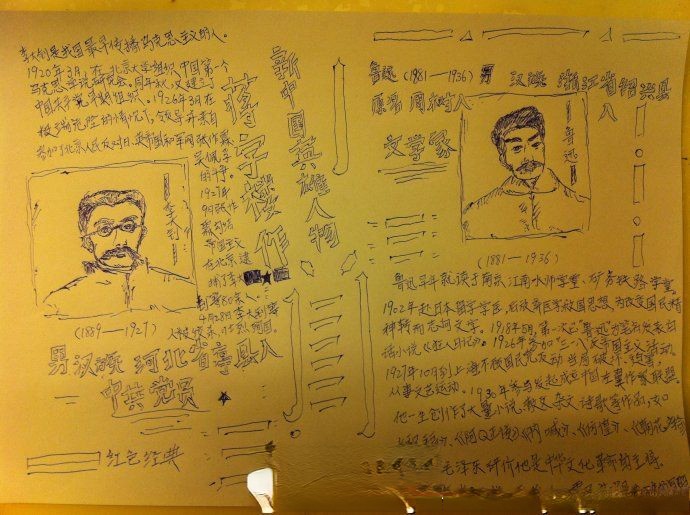 李大钊是我国最早传播马克思主义的人。
1920年3月,在北京大学组织中国第一个
马克思学说研究会。同年秋,又建立了
中国共产党早期组织。1926年3月在
极端危险的情况下,领导并亲自
参加了北京人民反对日、英帝国和军阀张作霖、
吴佩孚
的斗争。
1927年
在北京逮
捕了李大
4月28日李大钊等
(1889—1927)
李大钊
男 汉族 河北省
中共党员
红色经典
新中国英雄人物
蒋字楼作
鲁迅 (1981—1936) 男 汉族 浙江省绍兴县
人
原名 周树人
文学家
鲁迅
(1881—1936)
鲁迅早年就读于南京江南水师学堂、矿务铁路学堂
1902年赴日本留学学医,后放弃医学救国思想,为改变国民精
神转而志向文学。1918年5月,第一次以“鲁迅”为笔名发表白
话小说《狂人日记》。1926年参加“三一八”反帝国主义活动。
1927年10月到上海
从事文艺运动。1930年参与发起成立中国左翼作家联盟。
他一生创作了大量小说、散文、杂文、诗歌等作品,如
《阿Q正传》《呐喊》、《彷徨》、《朝花夕拾》
毛泽东评价他是中华文化革命的主将。